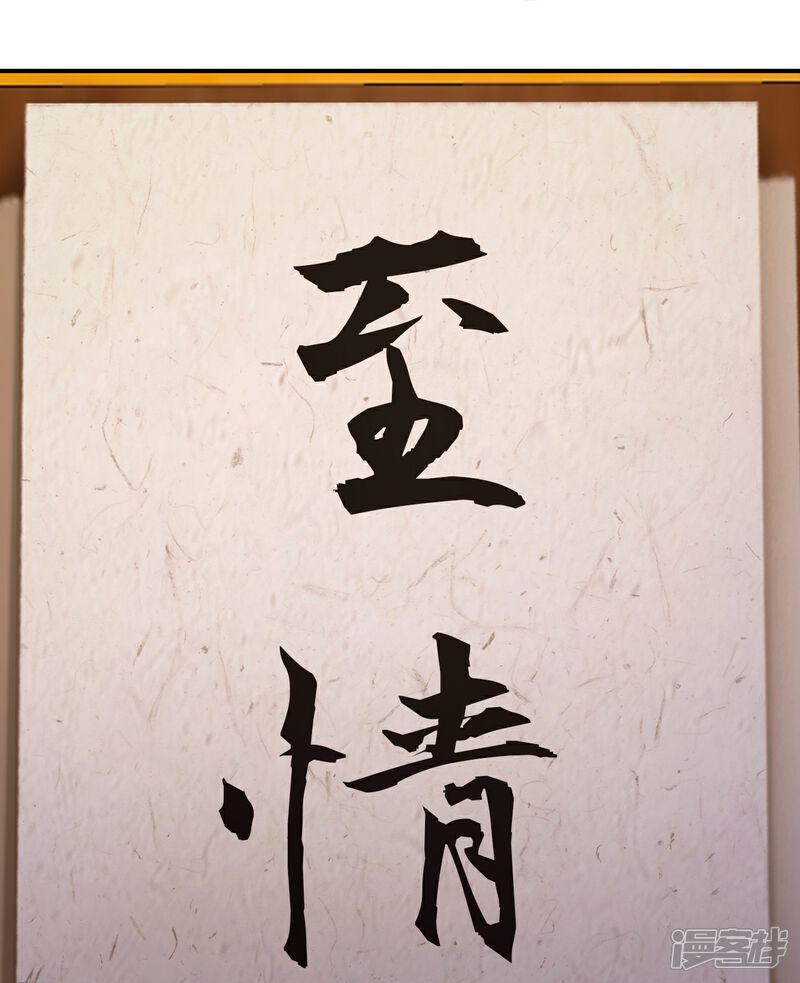 至
情
漫客栈